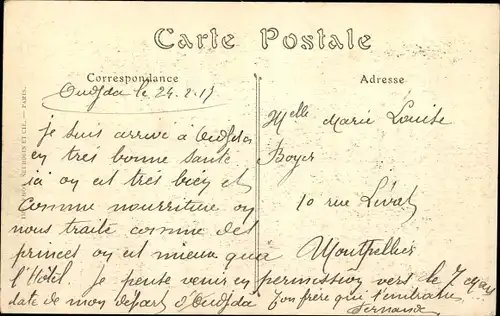 Carte Postale
Correspondance
Adresse
Oudjda le 24.2.15
je suis arrivé à Oudjda
en très bonne santé
ici on est très bien et
comme nourriture on
nous traite comme des
princes on est mieux qu'à
l'Hôtel. je pense venir en permission vers le 7 Mars
date de mon départ d'Oudjda
Ton frère qui t'embrasse
Fernand
Melle Marie Louise
Boyer
10 rue Lévat
Montpellier